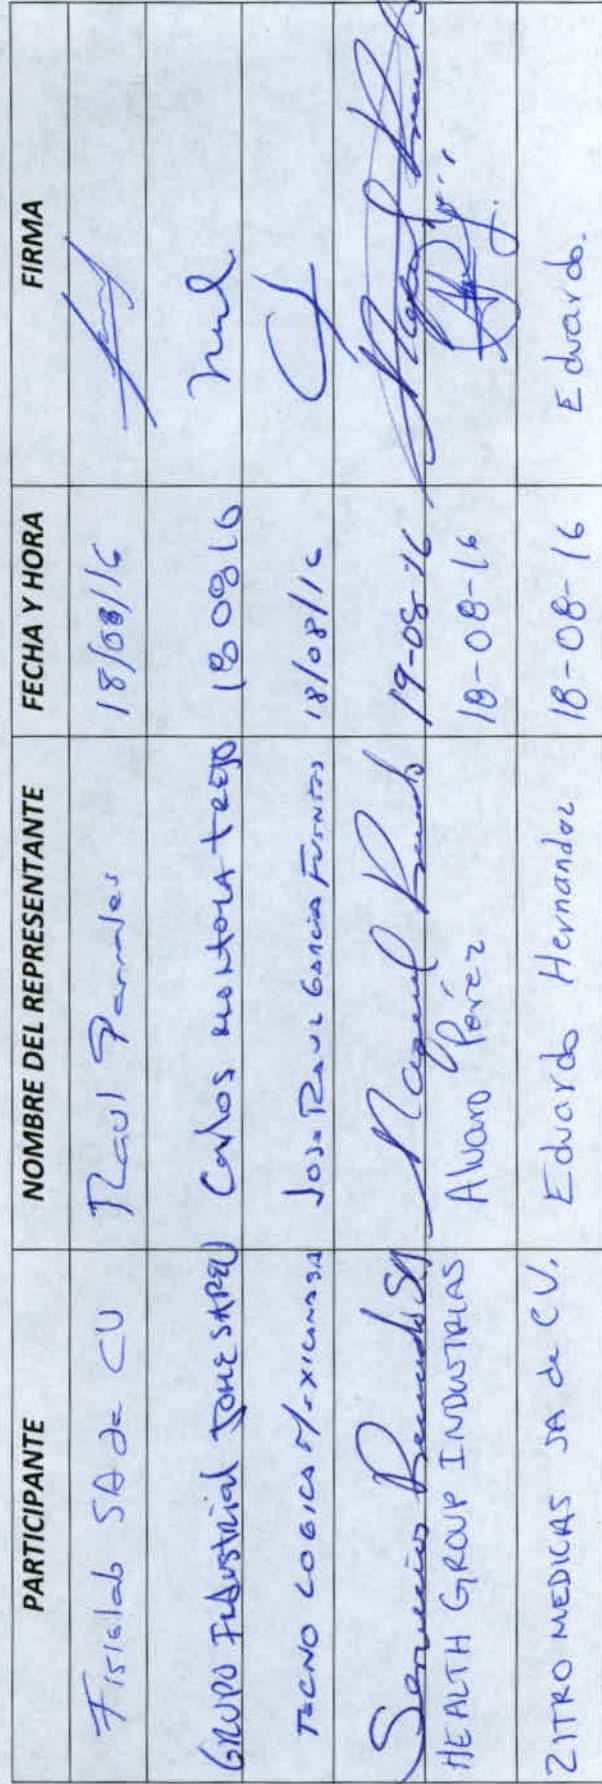 PARTICIPANTE NOMBRE DEL REPRESENTANTE FECHA Y HORA FIRMA
Fisiolab SA de CV Raul Parrales 18/08/16
GRUPO Industrial Carlos MONTOYA TREJO 18 08 16
TECNO LOGICA MEXICANA SA Jose Raul Garcia Fuentes 18/08/16
Servicios SA 19-08-16
HEALTH GROUP INDUSTRIAS Alvaro Pérez 18-08-16
ZITRO MEDICAS SA de CV. Eduardo Hernandez 18-08-16 Eduardo.